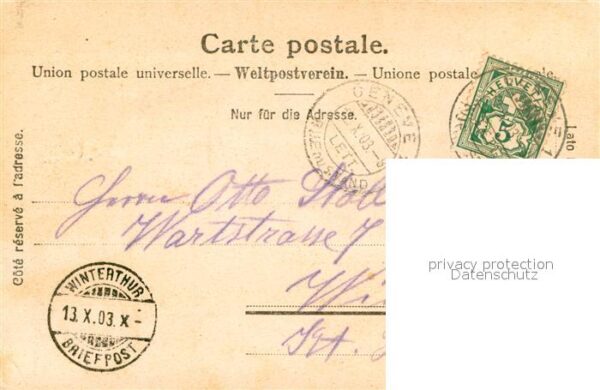 Carte postale.
Union postale universelle. — Weltpostverein. — Unione postale
Nur für die Adresse.
Côté réservé à l'adresse.
lato
GENÈVE
X.03-8
LETT
HELVETIA
5
Herrn Otto
Wartstrasse 7
Kt.
WINTERTHUR
13.X.03.X-
BRIEFPOST
privacy protection
Datenschutz